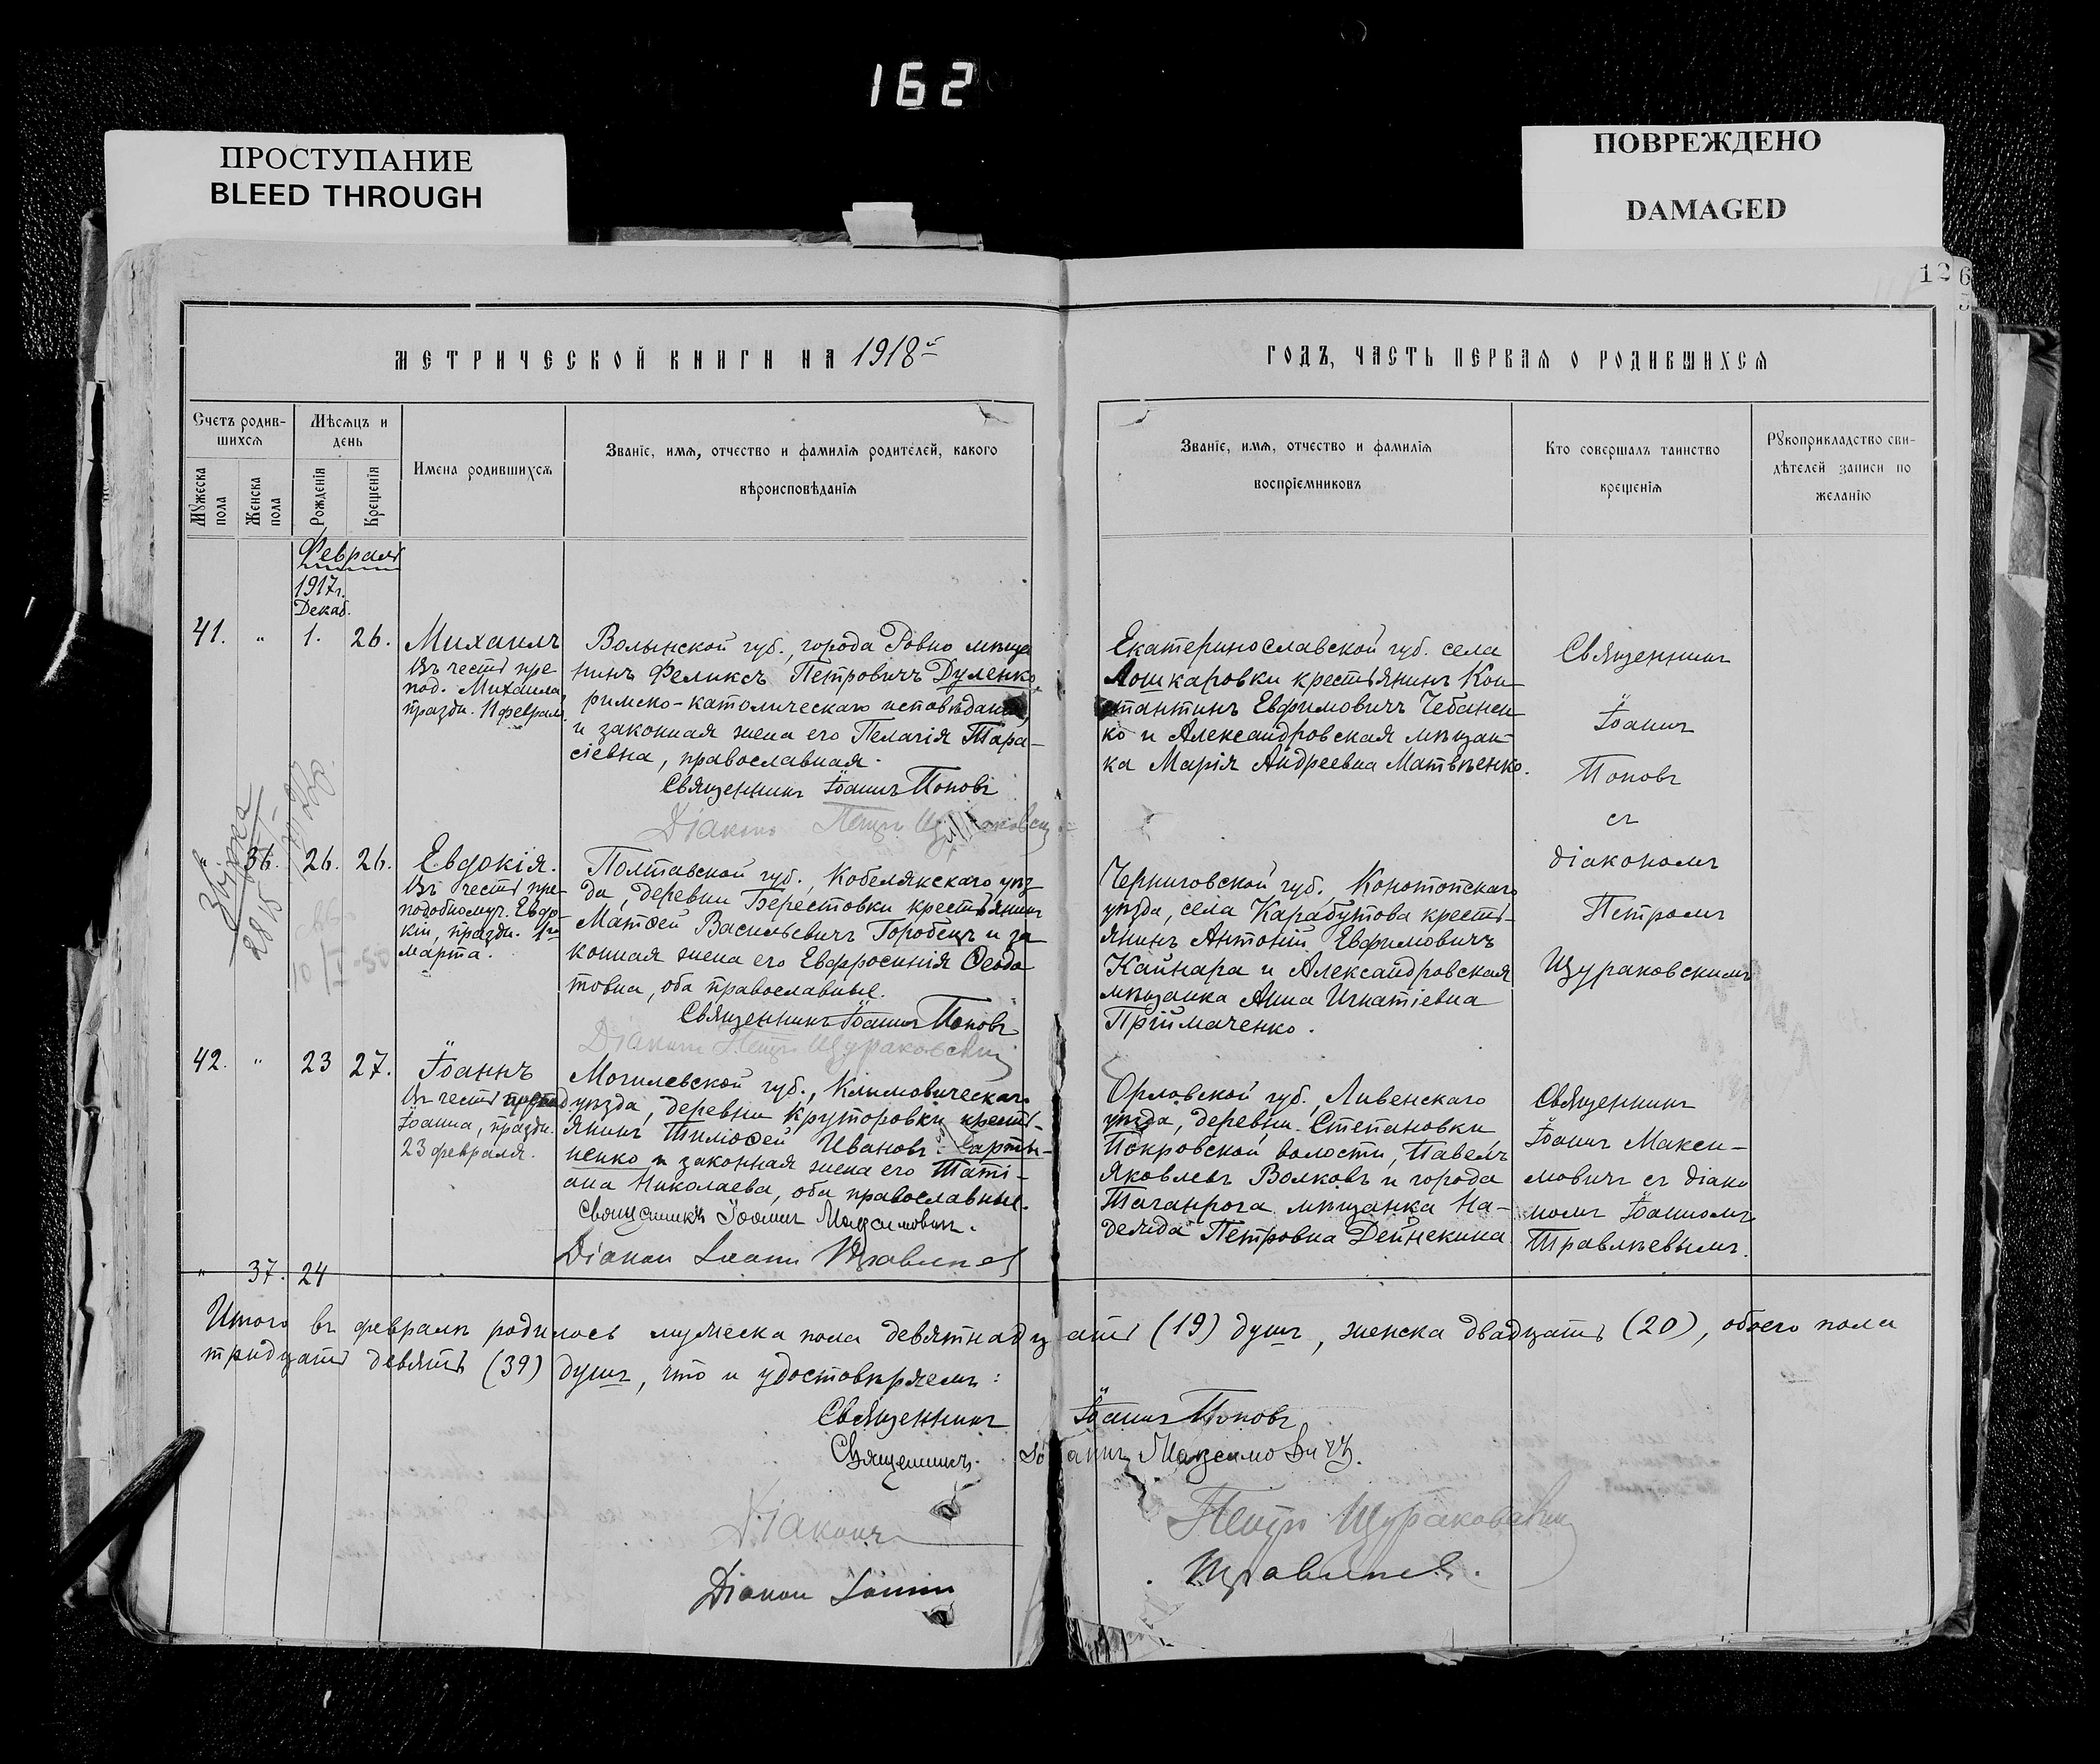 162
ПРОСТУПАНИЕ
BLEED THROUGH
ПОВРЕЖДЕНО
DAMAGED
126
МЕТРИЧЕСКОЙ КНИГИ НА 1918й
Счетъ родив-
шихся
Мѣсяцъ и
день
Мужеска
пола
Женска
пола
Рожденія
Крещенія
Имена родившихся
Званіе, имя, отчество и фамилія родителей, какого
вѣроисповѣданія
Февраль
1917г.
Декаб.
41. " 1. 26. Михаилъ
Въ честь пре-
под. Михаила
праздн. 11 февраля.
Волынской губ., города Ровно мѣща
нинъ Феликсъ Петровичъ Дуленко,
римско-католическаго исповѣданія,
и законная жена его Пелагія Тара-
сіевна, православная.
Священникъ Іоаннъ Поповъ
Діаконъ Петръ Щураковскій
" 36. 26. 26. Евдокія.
Въ честь пре-
подобномуч. Евдо-
кіи, праздн. 1го
марта.
Полтавской губ., Кобелякскаго уѣз
да, деревни Берестовки крестьянинъ
Матѳей Васильевичъ Горобецъ и за
конная жена его Евфросинія Ѳеодо
товна, оба православные.
Священникъ Іоаннъ Поповъ
Діаконъ Петръ Щураковскій
42. " 23 27. Іоаннъ
Въ честь
Іоанна, праздн.
23 февраля.
Могилевской губ., Климовическаго
уѣзда, деревни Круторовки кресть-
янинъ Тимоѳей Ивановъ
ненко и законная жена его Таті-
ана Николаева, оба православные.
Священникъ Іоаннъ Максимовичъ.
Діаконъ Іоаннъ Травлѣевъ
" 37. 24
ГОДЪ, ЧАСТЬ ПЕРВАЯ О РОДИВШИХСЯ
Званіе, имя, отчество и фамилія
воспріемниковъ
Кто совершалъ таинство
крещенія
Рукоприкладство сви-
дѣтелей записи по
желанію
Екатеринославской губ. села
Лошкаровки крестьянинъ Кон
стантинъ Евфимовичъ Чебанен
ко и Александровская мѣщан-
ка Марія Андреевна Матвѣенко.
Священникъ
Іоаннъ
Поповъ
съ
діакономъ
Петромъ
Щураковскимъ
Черниговской губ., Конотопскаго
уѣзда, села Карабутова кресть-
янинъ Антоній Евфимовичъ
Кайнара и Александровская
мѣщанка Анна Игнатіевна
Пріймаченко.
Орловской губ., Ливенскаго
уѣзда, деревни Степановки
Покровской волости, Павелъ
Яковлевъ Волковъ и города
Таганрога мѣщанка На-
дежда Петровна Дейнекина
Священникъ
Іоаннъ Макси-
мовичъ съ діако
номъ Іоанномъ
Травлѣевымъ.
Итого въ февралѣ родилось мужеска пола девятнадцать (19) душъ, женска двадцать (20), обоего пола
тридцать девять (39) душъ, что и удостовѣряемъ:
Священникъ Іоаннъ Поповъ
Священникъ Іоаннъ Максимовичъ.
Діаконъ Петръ Щураковскій
Діаконъ Іоаннъ Травлѣевъ.